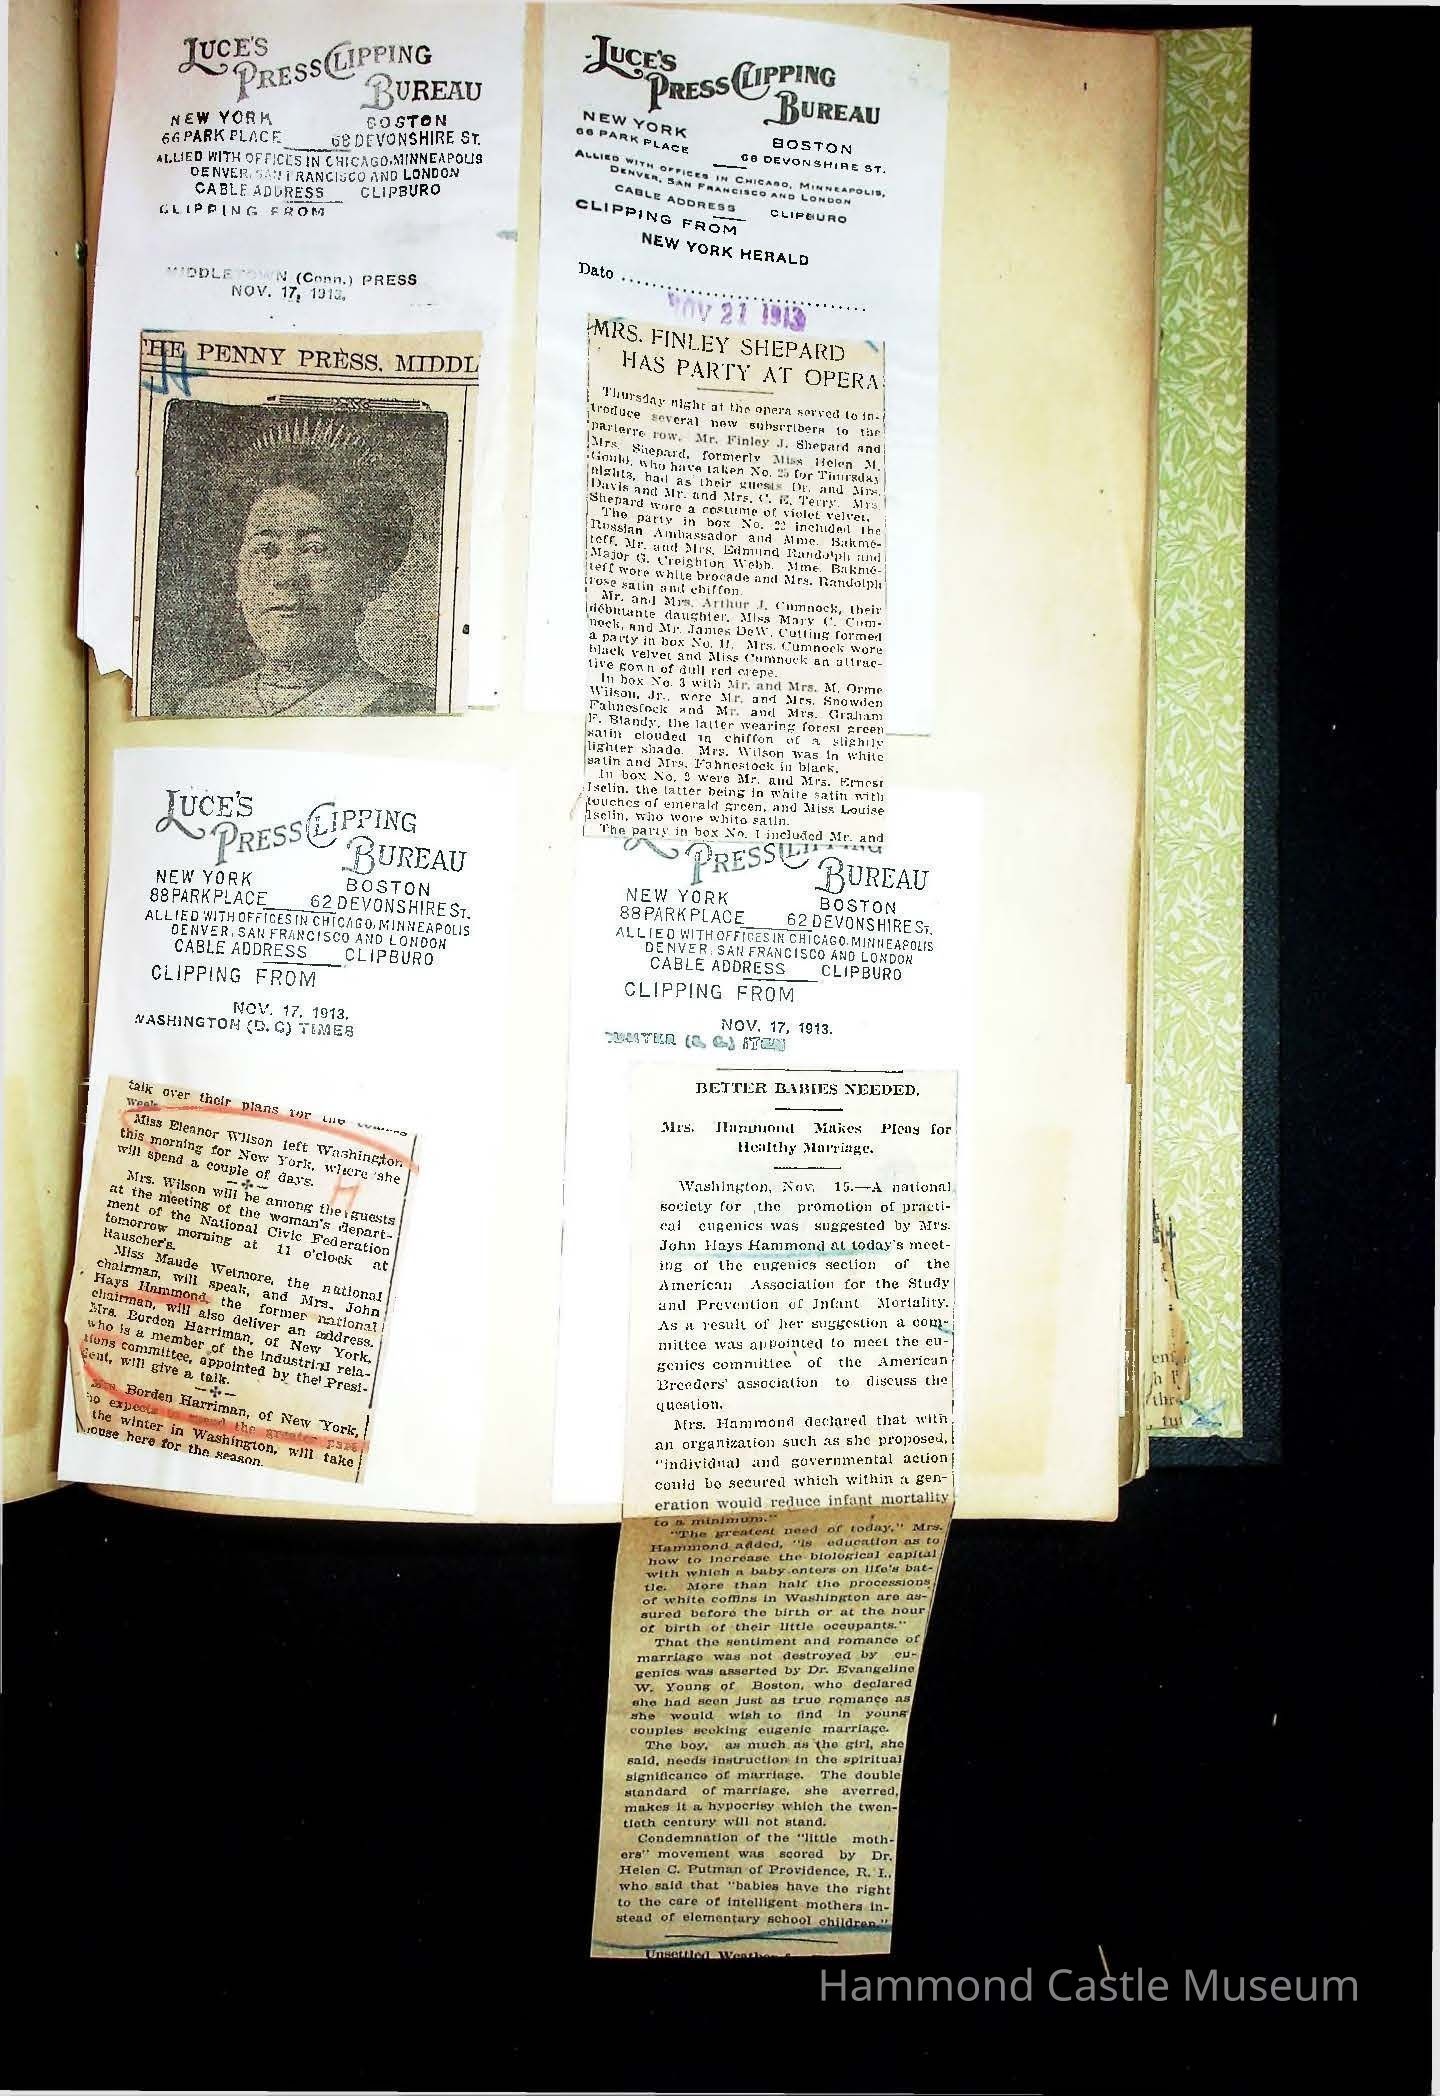 LUCE'S
PRESS CLIPPING
BUREAU
NEW YORK BOSTON
66 PARK PLACE 68 DEVONSHIRE ST.
ALLIED WITH OFFICES IN CHICAGO, MINNEAPOLIS
DENVER, SAN FRANCISCO AND LONDON
CABLE ADDRESS CLIPBURO
CLIPPING FROM
MIDDLETOWN (Conn.) PRESS
NOV. 17, 1913.
THE PENNY PRESS, MIDDL
LUCE'S
PRESS CLIPPING
BUREAU
NEW YORK BOSTON
66 PARK PLACE 68 DEVONSHIRE ST.
ALLIED WITH OFFICES IN CHICAGO, MINNEAPOLIS,
DENVER, SAN FRANCISCO AND LONDON
CABLE ADDRESS CLIPBURO
CLIPPING FROM
NEW YORK HERALD
Date
NOV 21 1913
MRS. FINLEY SHEPARD
HAS PARTY AT OPERA
Thursday night at the opera served to in-
troduce several new subscribers to the
parterre row. Mr. Finley J. Shepard and
Mrs. Shepard, formerly Miss Helen M.
Gould, who have taken No. 25 for Thursday
nights, had as their guests Dr. and Mrs.
Davis and Mr. and Mrs. C. E. Terry. Mrs.
Shepard wore a costume of violet velvet.
The party in box No. 22 included the
Russian Ambassador and Mme. Bakme-
teff, Mr. and Mrs. Edmund Randolph and
Major G. Creighton Webb. Mme. Bakme-
teff wore white brocade and Mrs. Randolph
rose satin and chiffon.
Mr. and Mrs. Arthur J. Cumnock, their
débutante daughter, Miss Mary C. Cum-
nock, and Mr. James DeW. Cutting formed
a party in box No. 11. Mrs. Cumnock wore
black velvet and Miss Cumnock an attrac-
tive gown of dull red crepe.
In box No. 3 with Mr. and Mrs. M. Orme
Wilson, Jr., were Mr. and Mrs. Snowden
Fahnestock and Mr. and Mrs. Graham
F. Blandy, the latter wearing forest green
satin clouded in chiffon of a slightly
lighter shade. Mrs. Wilson was in white
satin and Mrs. Fahnestock in black.
In box No. 9 were Mr. and Mrs. Ernest
Iselin, the latter being in white satin with
touches of emerald green, and Miss Louise
Iselin, who wore white satin.
The party in box No. 1 included Mr. and
LUCE'S
PRESS CLIPPING
BUREAU
NEW YORK BOSTON
88 PARK PLACE 62 DEVONSHIRE ST.
ALLIED WITH OFFICES IN CHICAGO, MINNEAPOLIS
DENVER, SAN FRANCISCO AND LONDON
CABLE ADDRESS CLIPBURO
CLIPPING FROM
NOV. 17, 1913.
WASHINGTON (D. C) TIMES
talk over their plans for the coming
week.
Miss Eleanor Wilson left Washington
this morning for New York, where she
will spend a couple of days.
Mrs. Wilson will be among the guests
at the meeting of the woman's depart-
ment of the National Civic Federation
tomorrow morning at 11 o'clock at
Rauscher's.
Miss Maude Wetmore, the national
chairman, will speak, and Mrs. John
Hays Hammond, the former national
chairman, will also deliver an address.
Mrs. Borden Harriman, of New York,
who is a member of the industrial rela-
tions committee, appointed by the Presi-
dent, will give a talk.
Mrs. Borden Harriman, of New York,
who expects to spend the greater part
the winter in Washington, will take
house here for the season.
PRESS CLIPPING
BUREAU
NEW YORK BOSTON
88 PARK PLACE 62 DEVONSHIRE ST.
ALLIED WITH OFFICES IN CHICAGO, MINNEAPOLIS
DENVER, SAN FRANCISCO AND LONDON
CABLE ADDRESS CLIPBURO
CLIPPING FROM
NOV. 17, 1913.
ITEM
BETTER BABIES NEEDED.
Mrs. Hammond Makes Pleas for
Healthy Marriage.
Washington, Nov. 15.—A national
society for the promotion of practi-
cal eugenics was suggested by Mrs.
John Hays Hammond at today's meet-
ing of the eugenics section of the
American Association for the Study
and Prevention of Infant Mortality.
As a result of her suggestion a com-
mittee was appointed to meet the eu-
genics committee of the American
Breeders' association to discuss the
question.
Mrs. Hammond declared that with
an organization such as she proposed,
"individual and governmental action
could be secured which within a gen-
eration would reduce infant mortality
to a minimum."
"The greatest need of today," Mrs.
Hammond added, "is education as to
how to increase the biological capital
with which a baby enters on life's bat-
tle. More than half the processions
of white coffins in Washington are as-
sured before the birth or at the hour
of birth of their little occupants."
That the sentiment and romance of
marriage was not destroyed by eu-
genics was asserted by Dr. Evangeline
W. Young of Boston, who declared
she had seen just as true romance as
she would wish to find in young
couples seeking eugenic marriage.
The boy, as much as the girl, she
said, needs instruction in the spiritual
significance of marriage. The double
standard of marriage, she averred,
makes it a hypocrisy which the twen-
tieth century will not stand.
Condemnation of the "little moth-
ers" movement was scored by Dr.
Helen C. Putman of Providence, R. I.,
who said that "babies have the right
to the care of intelligent mothers in-
stead of elementary school children."
Unsettled
Hammond Castle Museum